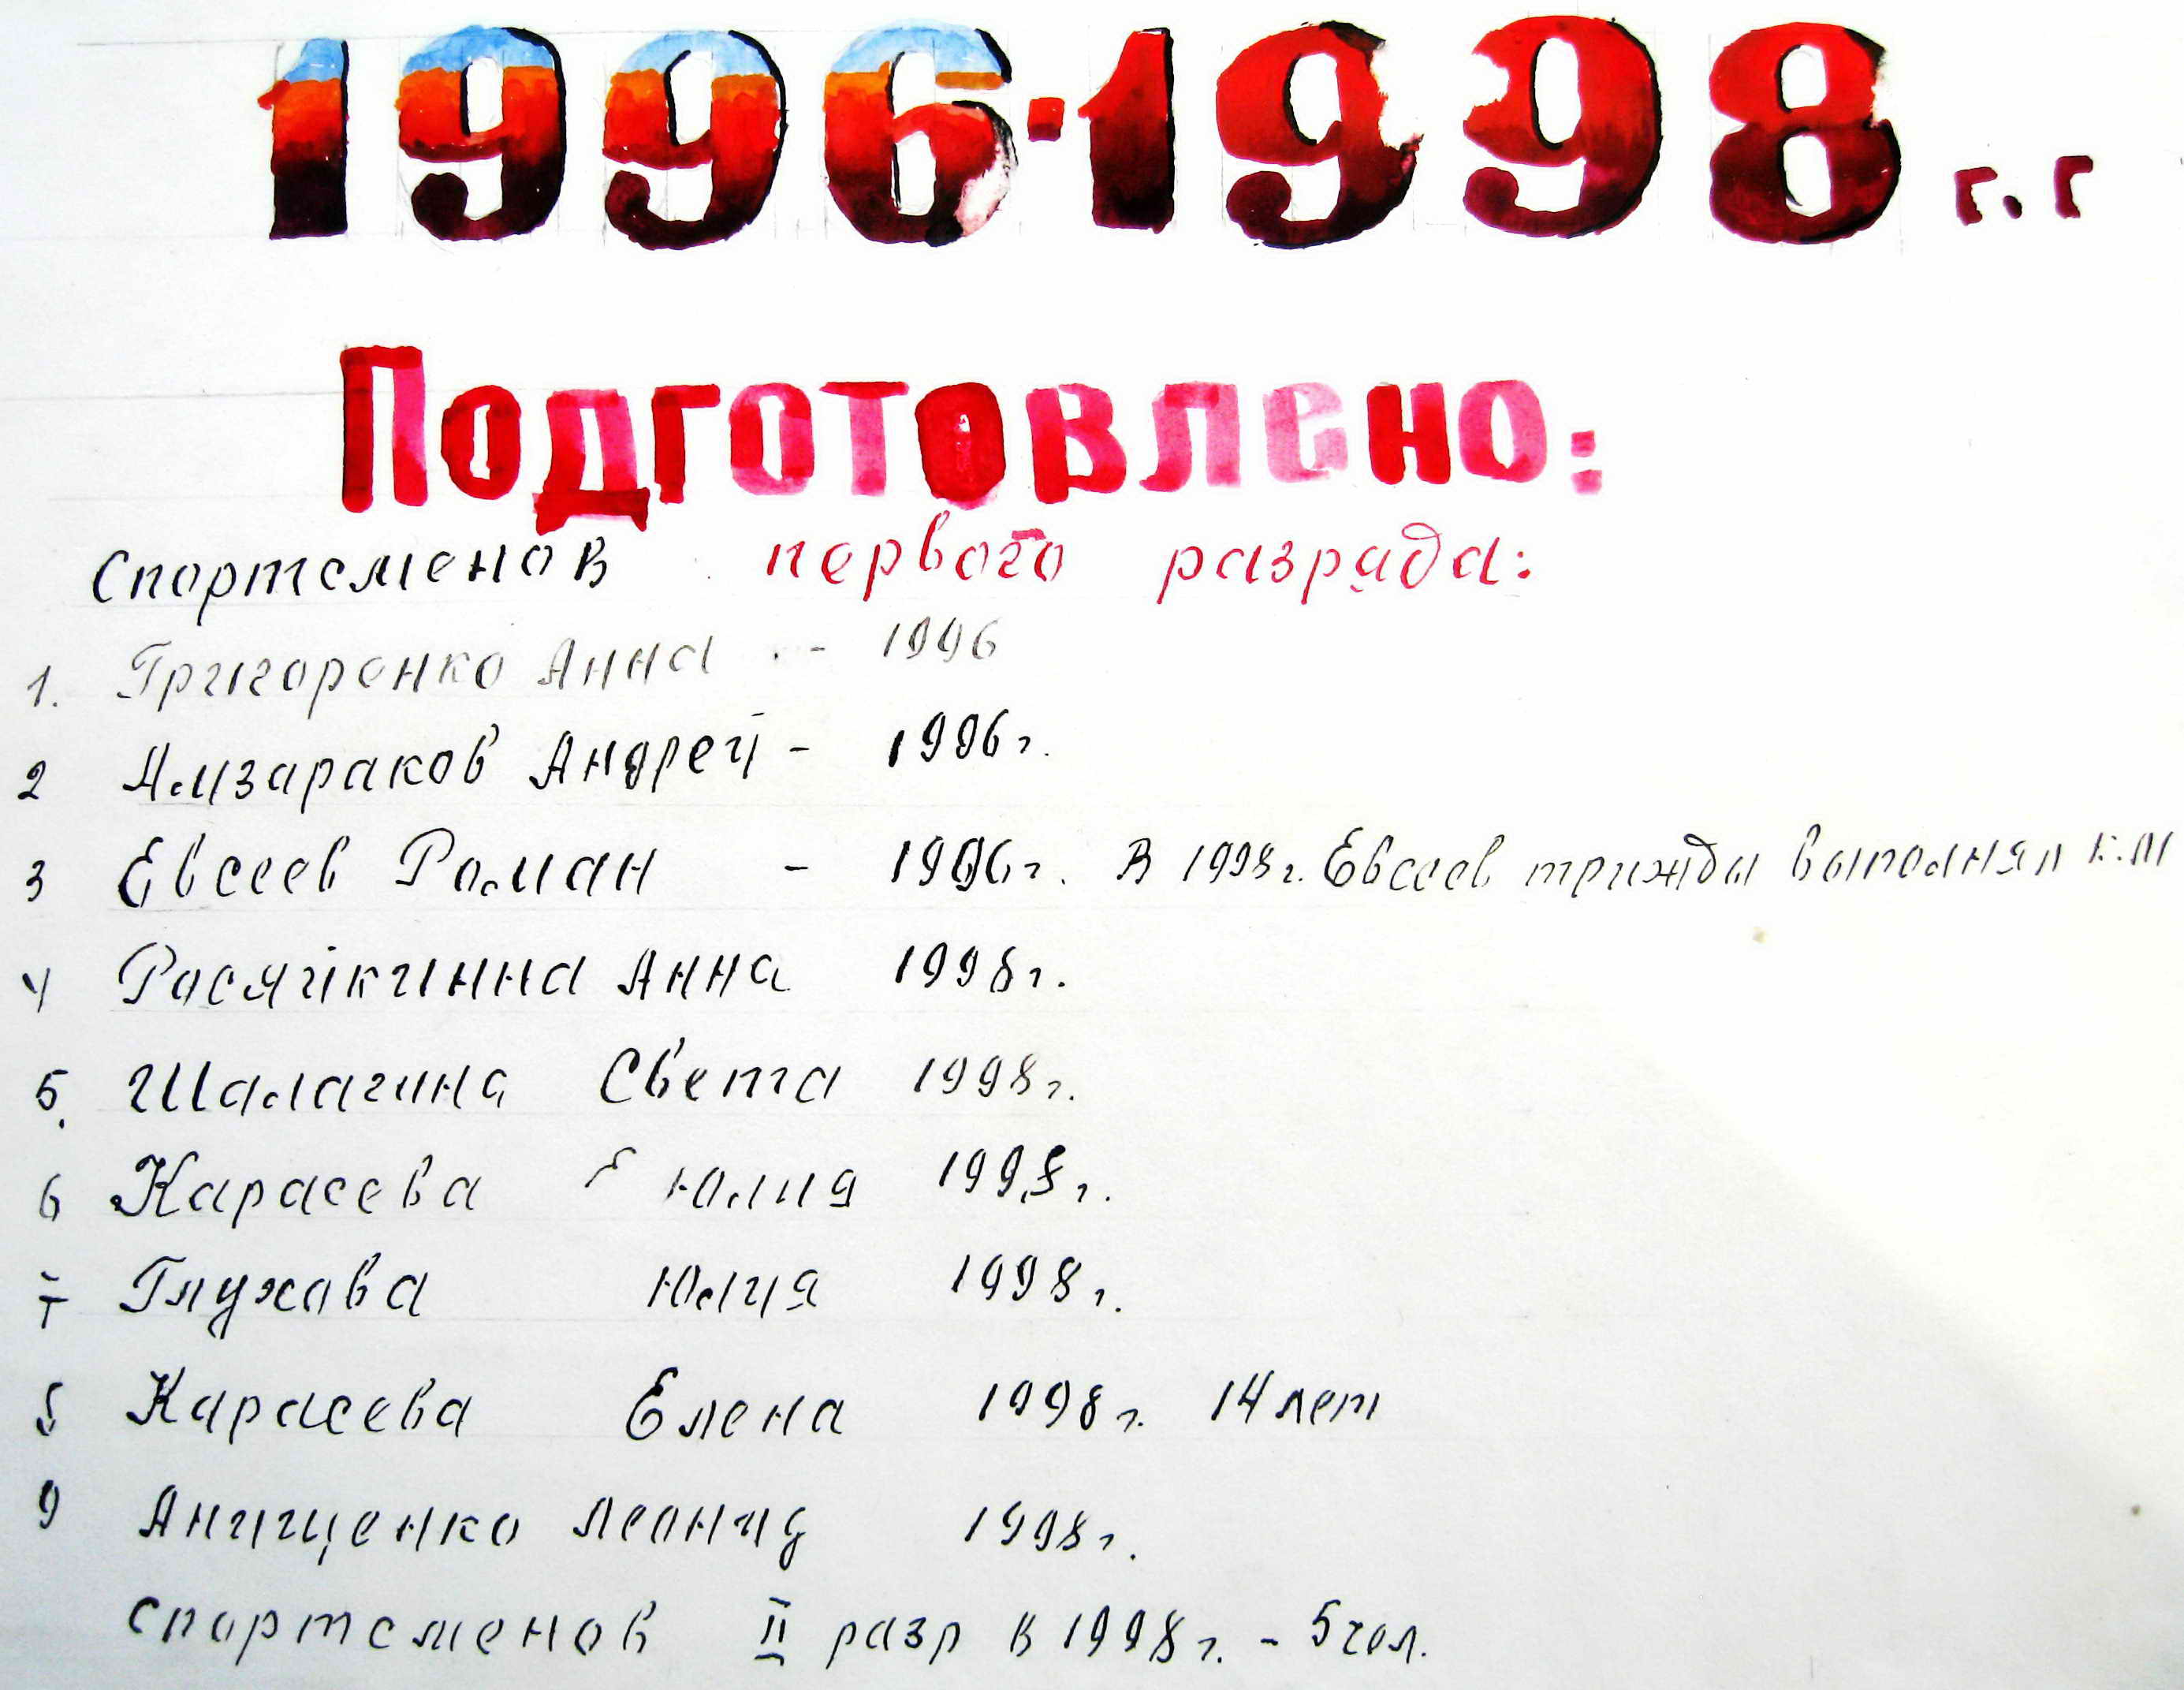 1996-1998 г.г
Подготовлено:
Спортсменов первого разряда:
1. Григоренко Анна - 1996
2 Амзараков Андрей - 1996г.
3 Евсеев Роман - 1996г. В 1998г. Евсеев трижды выполнял К.М
4 Росяйкинна Анна 1998г.
5. Шалагина Света 1998г.
6 Карасева Юлия 1998г.
7 Глухова Юлия 1998г.
8 Карасева Елена 1998г. 14 лет
9 Анищенко Леонид 1998г.
Спортсменов II разр в 1998г. - 5 чел.